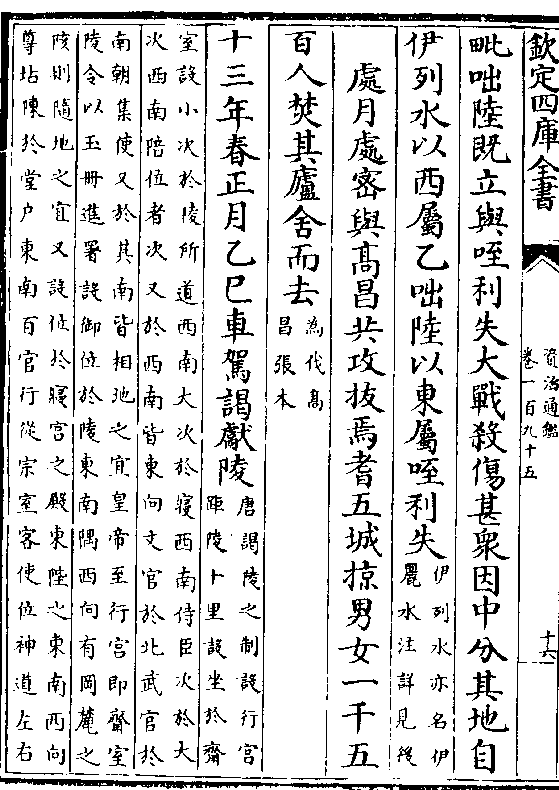 欽定四庫全書
資治通鑑
卷一百九十五
十六
毗咄陸既立與咥利失大戰殺傷甚衆因中分其地自
伊列水以西屬乙咄陸以東屬咥利失
伊列水亦名伊
麗水注詳見後
處月處宻與髙昌共攻抜焉耆五城掠男女一千五
百人焚其廬舍而去
為伐髙
昌張本
十三年春正月乙巳車駕謁獻陵
唐謁陵之制設行宫
距陵十里設坐於齋
室設小次於陵所道西南大次於寢西南侍臣次於大
次西南陪位者次又於西南皆東向文官於北武官於
南朝集使又於其南皆相地之宜皇帝至行宫即齋室
陵令以玉冊進署設御位於陵東南隅西向有岡麓之
陵則隨地之宜又設位於寢宫之殿東陛之東南西向
尊坫陳於堂户東南百官行從宗室客使位神道左右